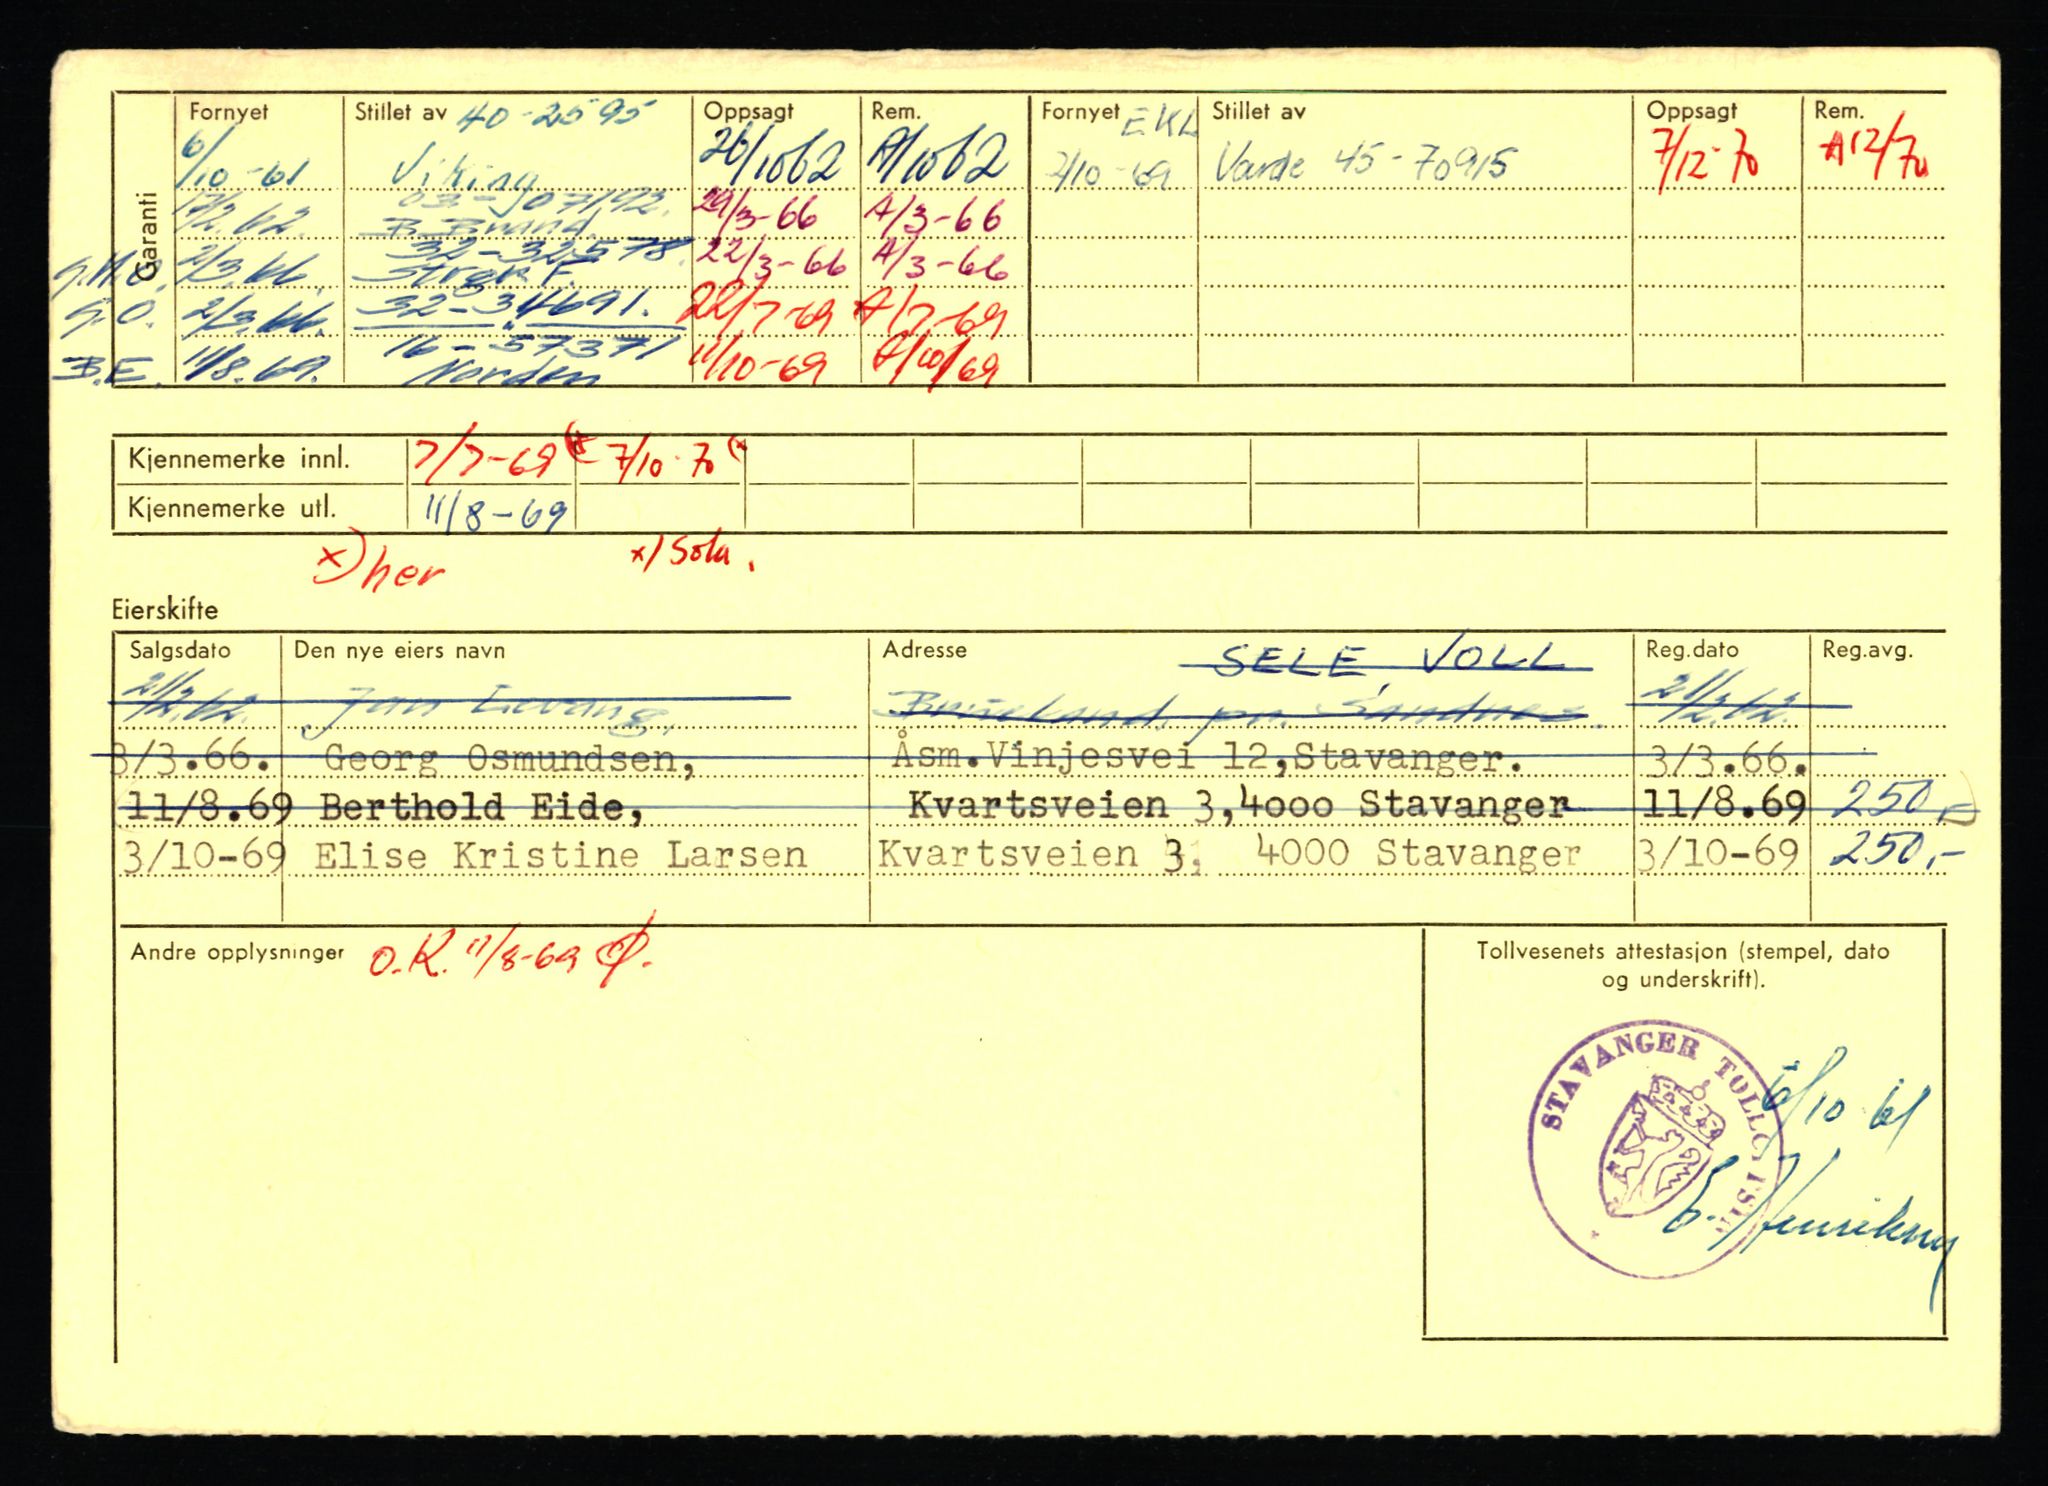 Garanti
Fornyet Stillet av 40-2595 Oppsagt Rem. Fornyet EKL Stillet av Oppsagt Rem.
6/10-61 Viking 26/1062 A/1062 2/10-69 Varde 45-70915 7/12-70 A12/70
17/2.62. B. Brand. 29/3-66 A/3-66
32-32578.
2/3.66. 22/3-66 A/3-66
G.O. 2/3.66. 32-34691. 22/7-69 A/7-69
16-57371
B.E. 11/8.69. Norden 11/10-69 A/10/69
Kjennemerke innl. 7/7-69 (x 7/10-70 (x
Kjennemerke utl. 11/8-69
x) her x) Sola.
Eierskifte
Salgsdato Den nye eiers navn Adresse SELE, VOLL Reg.dato Reg.avg.
21/2.62. Jan 21/2.62.
3/3.66. Georg Osmundsen, Åsm.Vinjesvei 12,Stavanger. 3/3.66.
11/8.69 Berthold Eide, Kvartsveien 3,4000 Stavanger 11/8.69 250,-
3/10-69 Elise Kristine Larsen Kvartsveien 3, 4000 Stavanger 3/10-69 250,-
Andre opplysninger O.K. 11/8-69
Tollvesenets attestasjon (stempel, dato
og underskrift).
STAVANGER
6/10 61
E. Henriksen